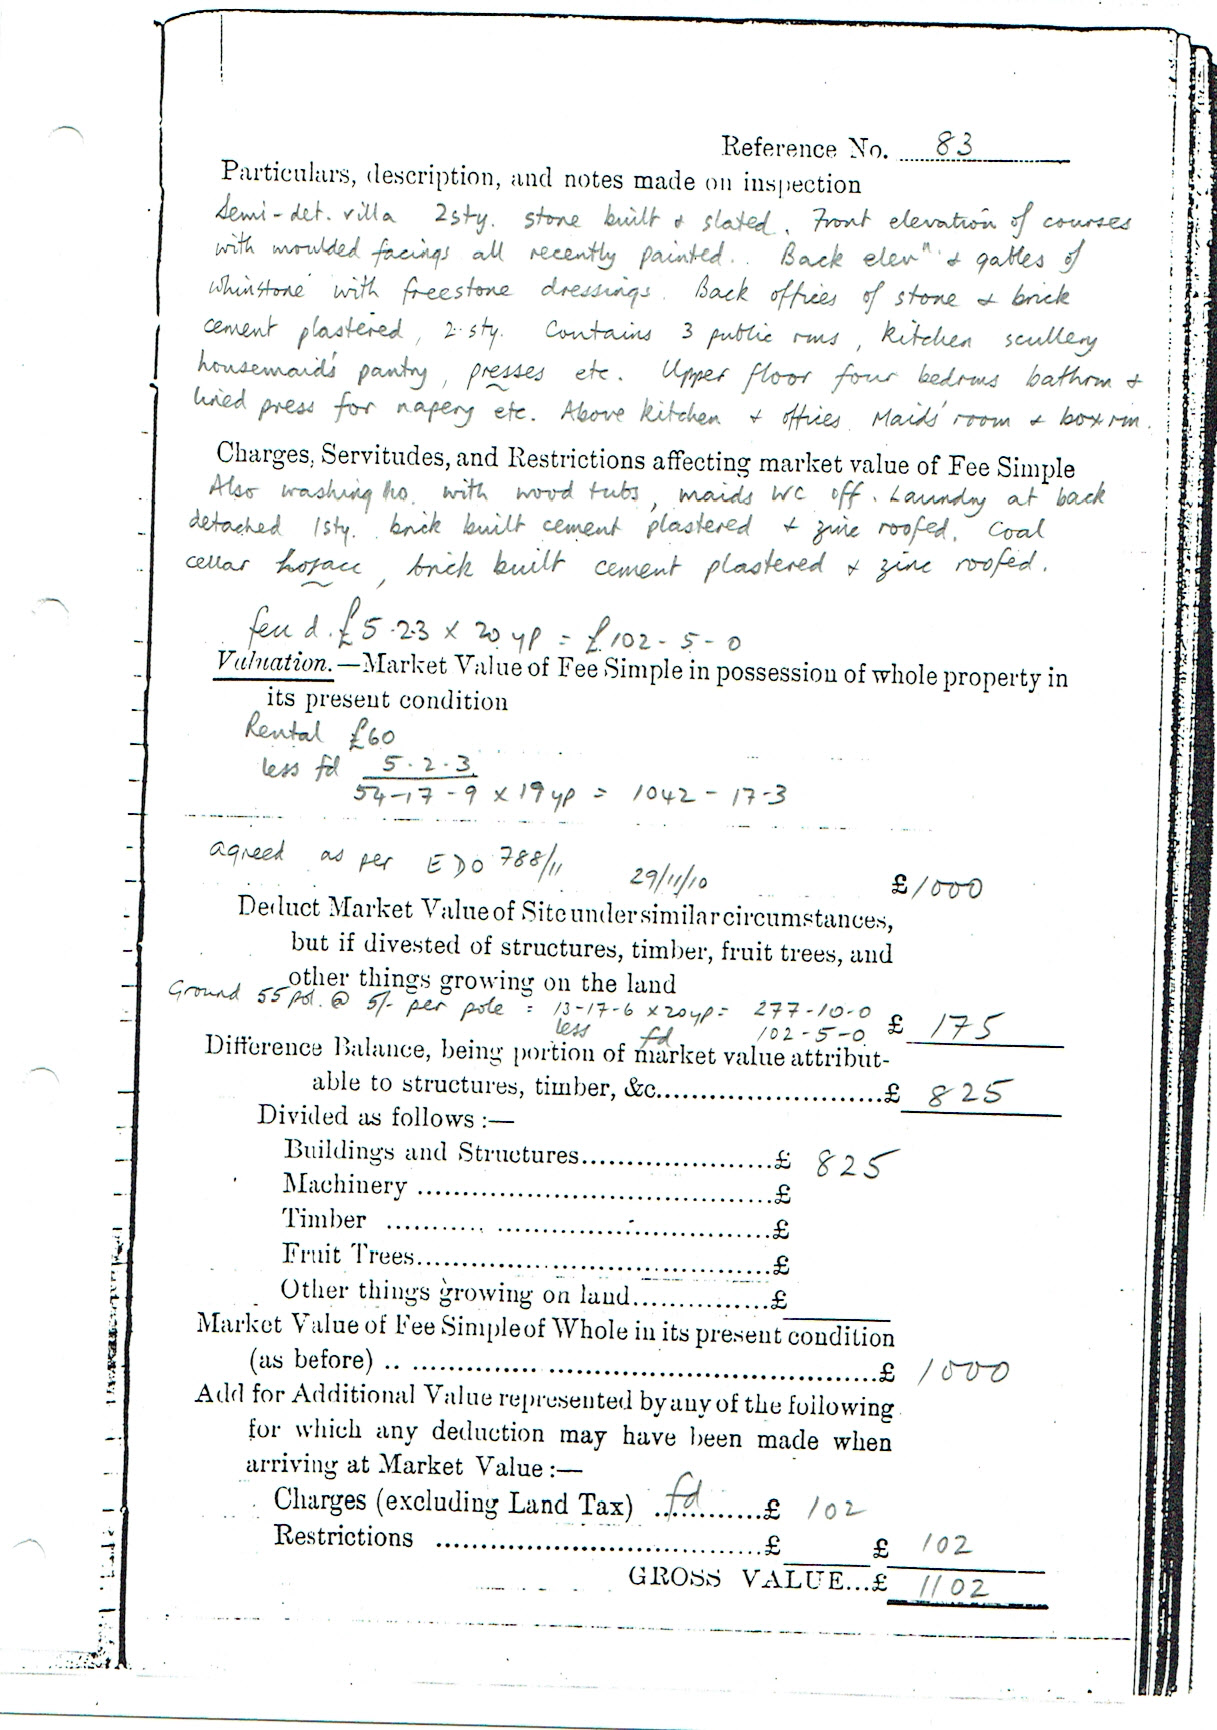 Reference No. 83
Particulars, description, and notes made on inspection
Semi-det. villa 2sty. stone built & slated. Front elevation of courses
with moulded facings all recently painted.. Back elevn & gables of
whinstone with freestone dressings. Back offices of stone & brick
cement plastered, 2 sty. Contains 3 public rms, kitchen scullery
housemaid's pantry, presses etc. Upper floor four bedrms bathrm &
lined press for napery etc. Above kitchen & offices Maids' room & boxrm.
Charges, Servitudes, and Restrictions affecting market value of Fee Simple
Also washing ho. with wood tubs, maids WC off. Laundry at back
detached 1sty. brick built cement plastered & zinc roofed. Coal
cellar , brick built cement plastered & zinc roofed.
feu d. £5.2.3 x 20 yp = £102-5-0
Valuation.—Market Value of Fee Simple in possession of whole property in
its present condition
Rental £60
less fd 5.2.3
54-17-9 x 19 yp = 1042-17-3
agreed as per EDO 788/11 29/11/10 £1000
Deduct Market Value of Site under similar circumstances,
but if divested of structures, timber, fruit trees, and
other things growing on the land
Ground 55 pol. @ 5/- per pole = 13-17-6 x 20yp = 277-10-0
less fd 102-5-0 £ 175
Difference Balance, being portion of market value attribut-
able to structures, timber, &c........................£ 825
Divided as follows :—
Buildings and Structures.....................£ 825
Machinery .......................................£
Timber ........... ..............................£
Fruit Trees.......................................£
Other things growing on land...............£
Market Value of Fee Simple of Whole in its present condition
(as before) .. ..................................................£ 1000
Add for Additional Value represented by any of the following
for which any deduction may have been made when
arriving at Market Value :—
Charges (excluding Land Tax) ..fd.........£ 102
Restrictions ....................................£ £ 102
GROSS VALUE...£ 1102